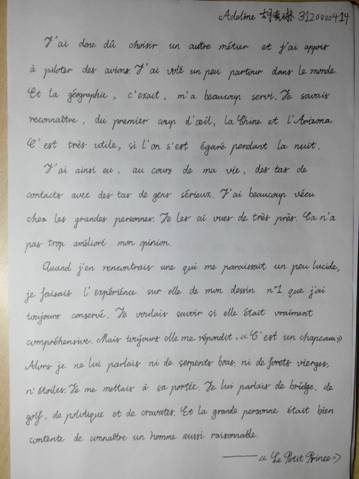 Adeline 3120000414
J'ai donc dû choisir un autre métier et j'ai appris
à piloter des avions. J'ai volé un peu partout dans le monde.
Et la géographie, c'exact, m'a beaucoup servi. Je savais
reconnaître, du premier coup d'œil, la Chine et l'Arizona.
C'est très utile, si l'on s'est égaré pendant la nuit.
J'ai ainsi eu, au cours de ma vie, des tas de
contacts avec des tas de gens sérieux. J'ai beaucoup vécu
chez les grandes personnes. Je les ai vues de très près. Ça n'a
pas trop amélioré mon opinion.
Quand j'en rencontrais une qui me paraissait un peu lucide,
je faisais l'expérience sur elle de mon dessin n°1 que j'ai
toujours conservé. Je voulais savoir si elle était vraiment
compréhensive. Mais toujours elle me répondit. «C'est un chapeau»
Alors je ne lui parlais ni de serpents boas, ni de forêts vierges,
ni étoiles. Je me mettais à sa portée. Je lui parlais de bridge, de
golf, de politique et de cravates. Et la grande personne était bien
contente de connaître un homme aussi raisonnable.
——— «Le Petit Prince»